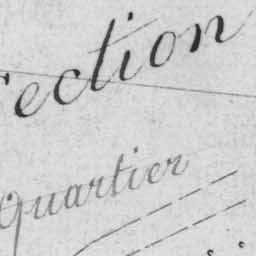 ection
Quartier